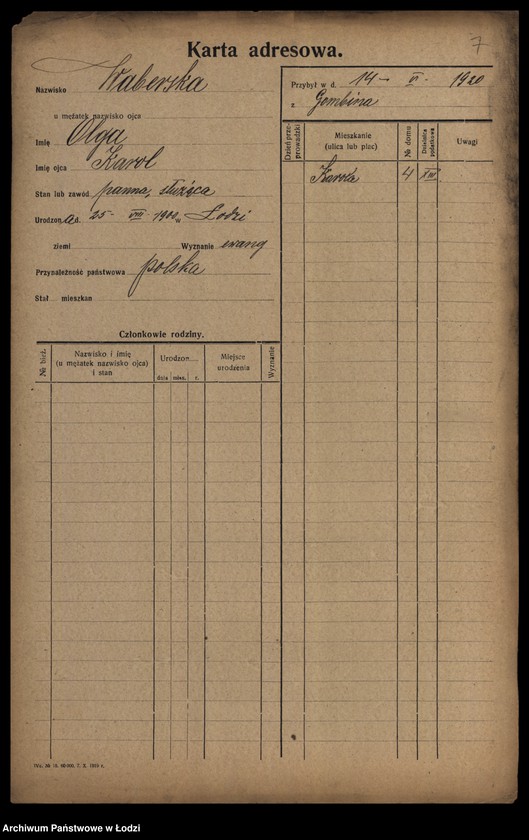 7
Karta adresowa.
Nazwisko Waberska
u mężatek nazwisko ojca
Imię Olga
Imię ojca Karol
Stan lub zawód panna, służąca
Urodzona d. 25 - VIII 1900 w Łodzi
ziemi Wyznanie ewang
Przynależność państwowa polska
Stał mieszkan
Członkowie rodziny.
№ bież.
Nazwisko i imię
(u mężatek nazwisko ojca)
i stan
Urodzon
dnia mies. r.
Miejsce
urodzenia
Wyznanie
Przybył w d. 14 - VI 1920
z Gombina
Dzień przeprowadzki
Mieszkanie
(ulica lub plac)
№ domu
Dzielnica
podatkowa
Uwagi
Karola 4 XIII